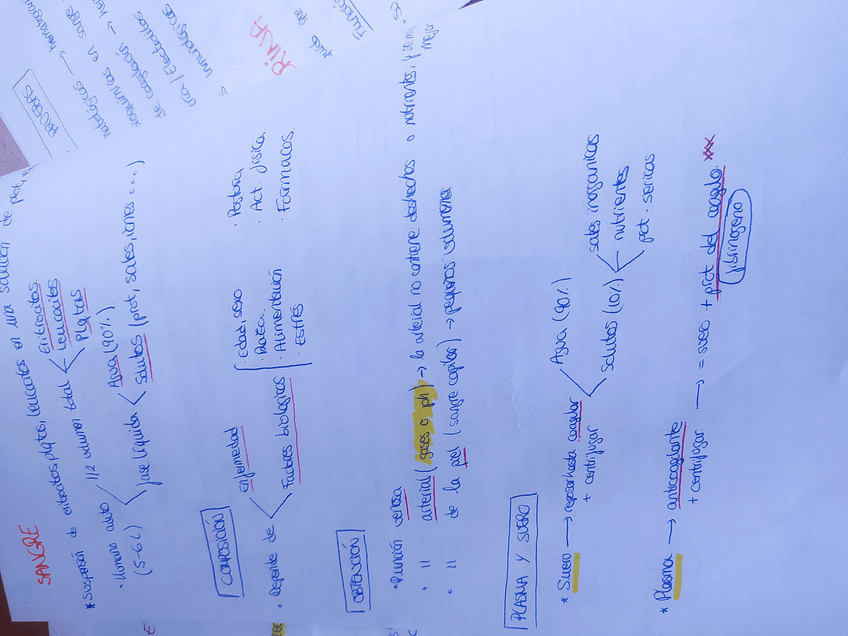 SANGRE
* Suspensión de eritrocitos, plqtas, leucocitos en una solución de prot,
· Humano adulto 1/2 volumen total Eritrocitos
(5-6L) Leucocitos
Plqtas
fase líquida Agua (90%)
solutos (prot, sales, iones ...)
COMPOSICIÓN
· Depende de enfermedad
Factores biológicos · Edad, sexo · Postura
· Raza · Act física
· Alimentación · Fármacos
· Estrés
OBTENCIÓN
· Punción venosa
· " arterial (gases o ph) → la arterial no contiene deshechos o nutrientes,
· " de la piel (sangre capilar) → pequeños volúmenes
PLASMA Y SUERO
* Suero → reposar hasta coagular Agua (90%)
+ centrifugar solutos (10%) sales inorgánicas
nutrientes
prot. séricas
* Plasma → anticoagulante
+ centrifugar → = suero + prot del coágulo. xxx
fibrinógeno
PRUEBAS
RINA